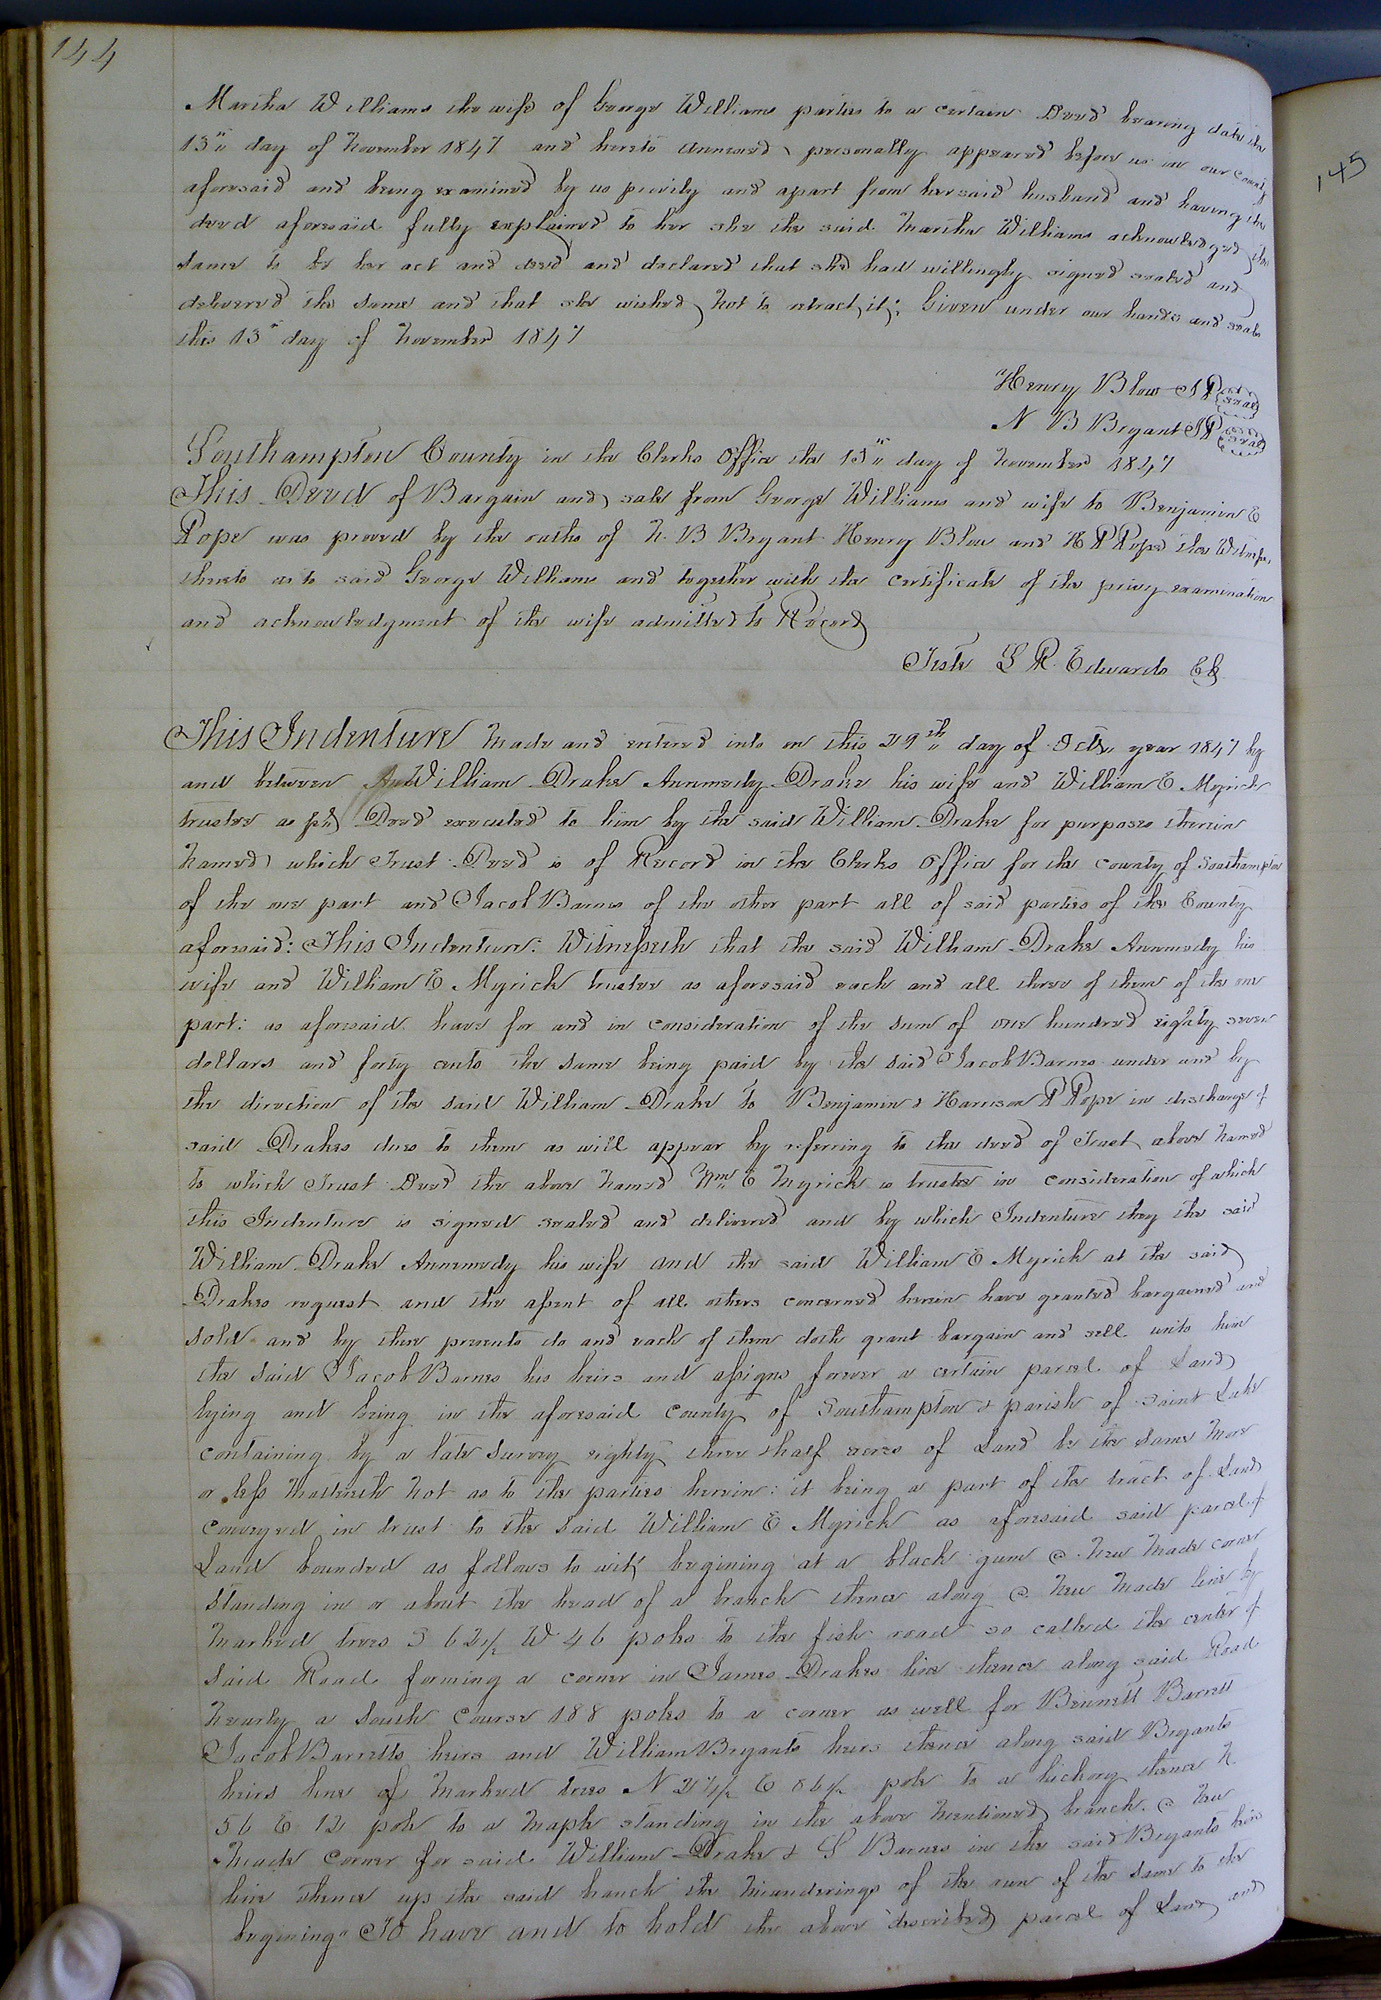 144
Martha Williams the wife of George Williams parties to a certain Deed bearing date the
13th day of November 1847 and hereto annexed personally appeared before us in our County
aforesaid and being examined by us privily and apart from her said husband and having the
deed aforesaid fully explained to her she the said Martha Williams acknowledged the
same to be her act and deed and declared that she had willingly signed sealed and
delivered the same and that she wished not to retract it; Given under our hands and seals
this 13th day of November 1847
Henry Blow JP seal
N B Bryant JP seal
Southampton County in the Clerks Office the 15th day of November 1847
This Deed of Bargain and sale from George Williams and wife to Benjamin E
Pope was proved by the oaths of N. B Bryant Henry Blow and H P Pope the Witnesses
thereto as to said George Williams and together with the certificate of the privy examination
and acknowledgment of the wife admitted to Record
Teste L R. Edwards Clk
This Indenture made and entered into on this 29th day of Octr year 1847 by
and between William Drake Annmedy Drake his wife and William E Myrick
trustee as pr Deed executed to him by the said William Drake for purposes therein
named which Trust Deed is of Record in the Clerks Office for the County of Southampton
of the one part and Jacob Barnes of the other part all of said parties of the County
aforesaid: This Indenture: Witnesseth that the said William Drake Annmedy his
wife and William E Myrick trustee as aforesaid each and all three of them of the one
part: as aforesaid have for and in consideration of the sum of one hundred eighty seven
dollars and forty cents the same being paid by the said Jacob Barnes under and by
the direction of the said William Drake to Benjamin & Harrison P Pope in discharge of
said Drakes dues to them as will appear by referring to the deed of Trust above named
to which Trust Deed the above named Wm E Myrick is trustee in consideration of which
this Indenture is signed sealed and delivered and by which Indenture they the said
William Drake Annmedy his wife and the said William E Myrick at the said
Drakes request and the assent of all others concerned herein have granted bargained and
sold and by these presents do and each of them doth grant bargain and sell unto him
the said Jacob Barnes his heirs and assigns forever a certain parcel of Land
lying and being in the aforesaid County of Southampton & parish of Saint Luke
containing by a late survey eighty three & half acres of Land be the same more
or less mattereth not as to the parties herein: it being a part of the tract of Land
conveyed in trust to the said William E Myrick as aforesaid said parcel of
Land bounded as follows to wit, begining at a black gum a new made corner
standing in or about the head of a branch thence along a new made line by
marked trees S 62½ W 46 poles to the fish road so called the center of
said Road forming a corner in James Drakes line thence along said Road
nearly a South Course 188 poles to a corner as well for Bennett Barrett
Jacob Barretts heirs and William Bryants heirs thence along said Bryants
heirs line of marked trees N 21½ E 86½ pole to a hickory thence N
56 E 12 pole to a maple standing in the above mentioned branch a new
made corner for said William Drake & S Barnes in the said Bryants heirs
line thence up the said branch the meanderings of the run of the same to the
begining" To have and to hold the above described parcel of Land and
145